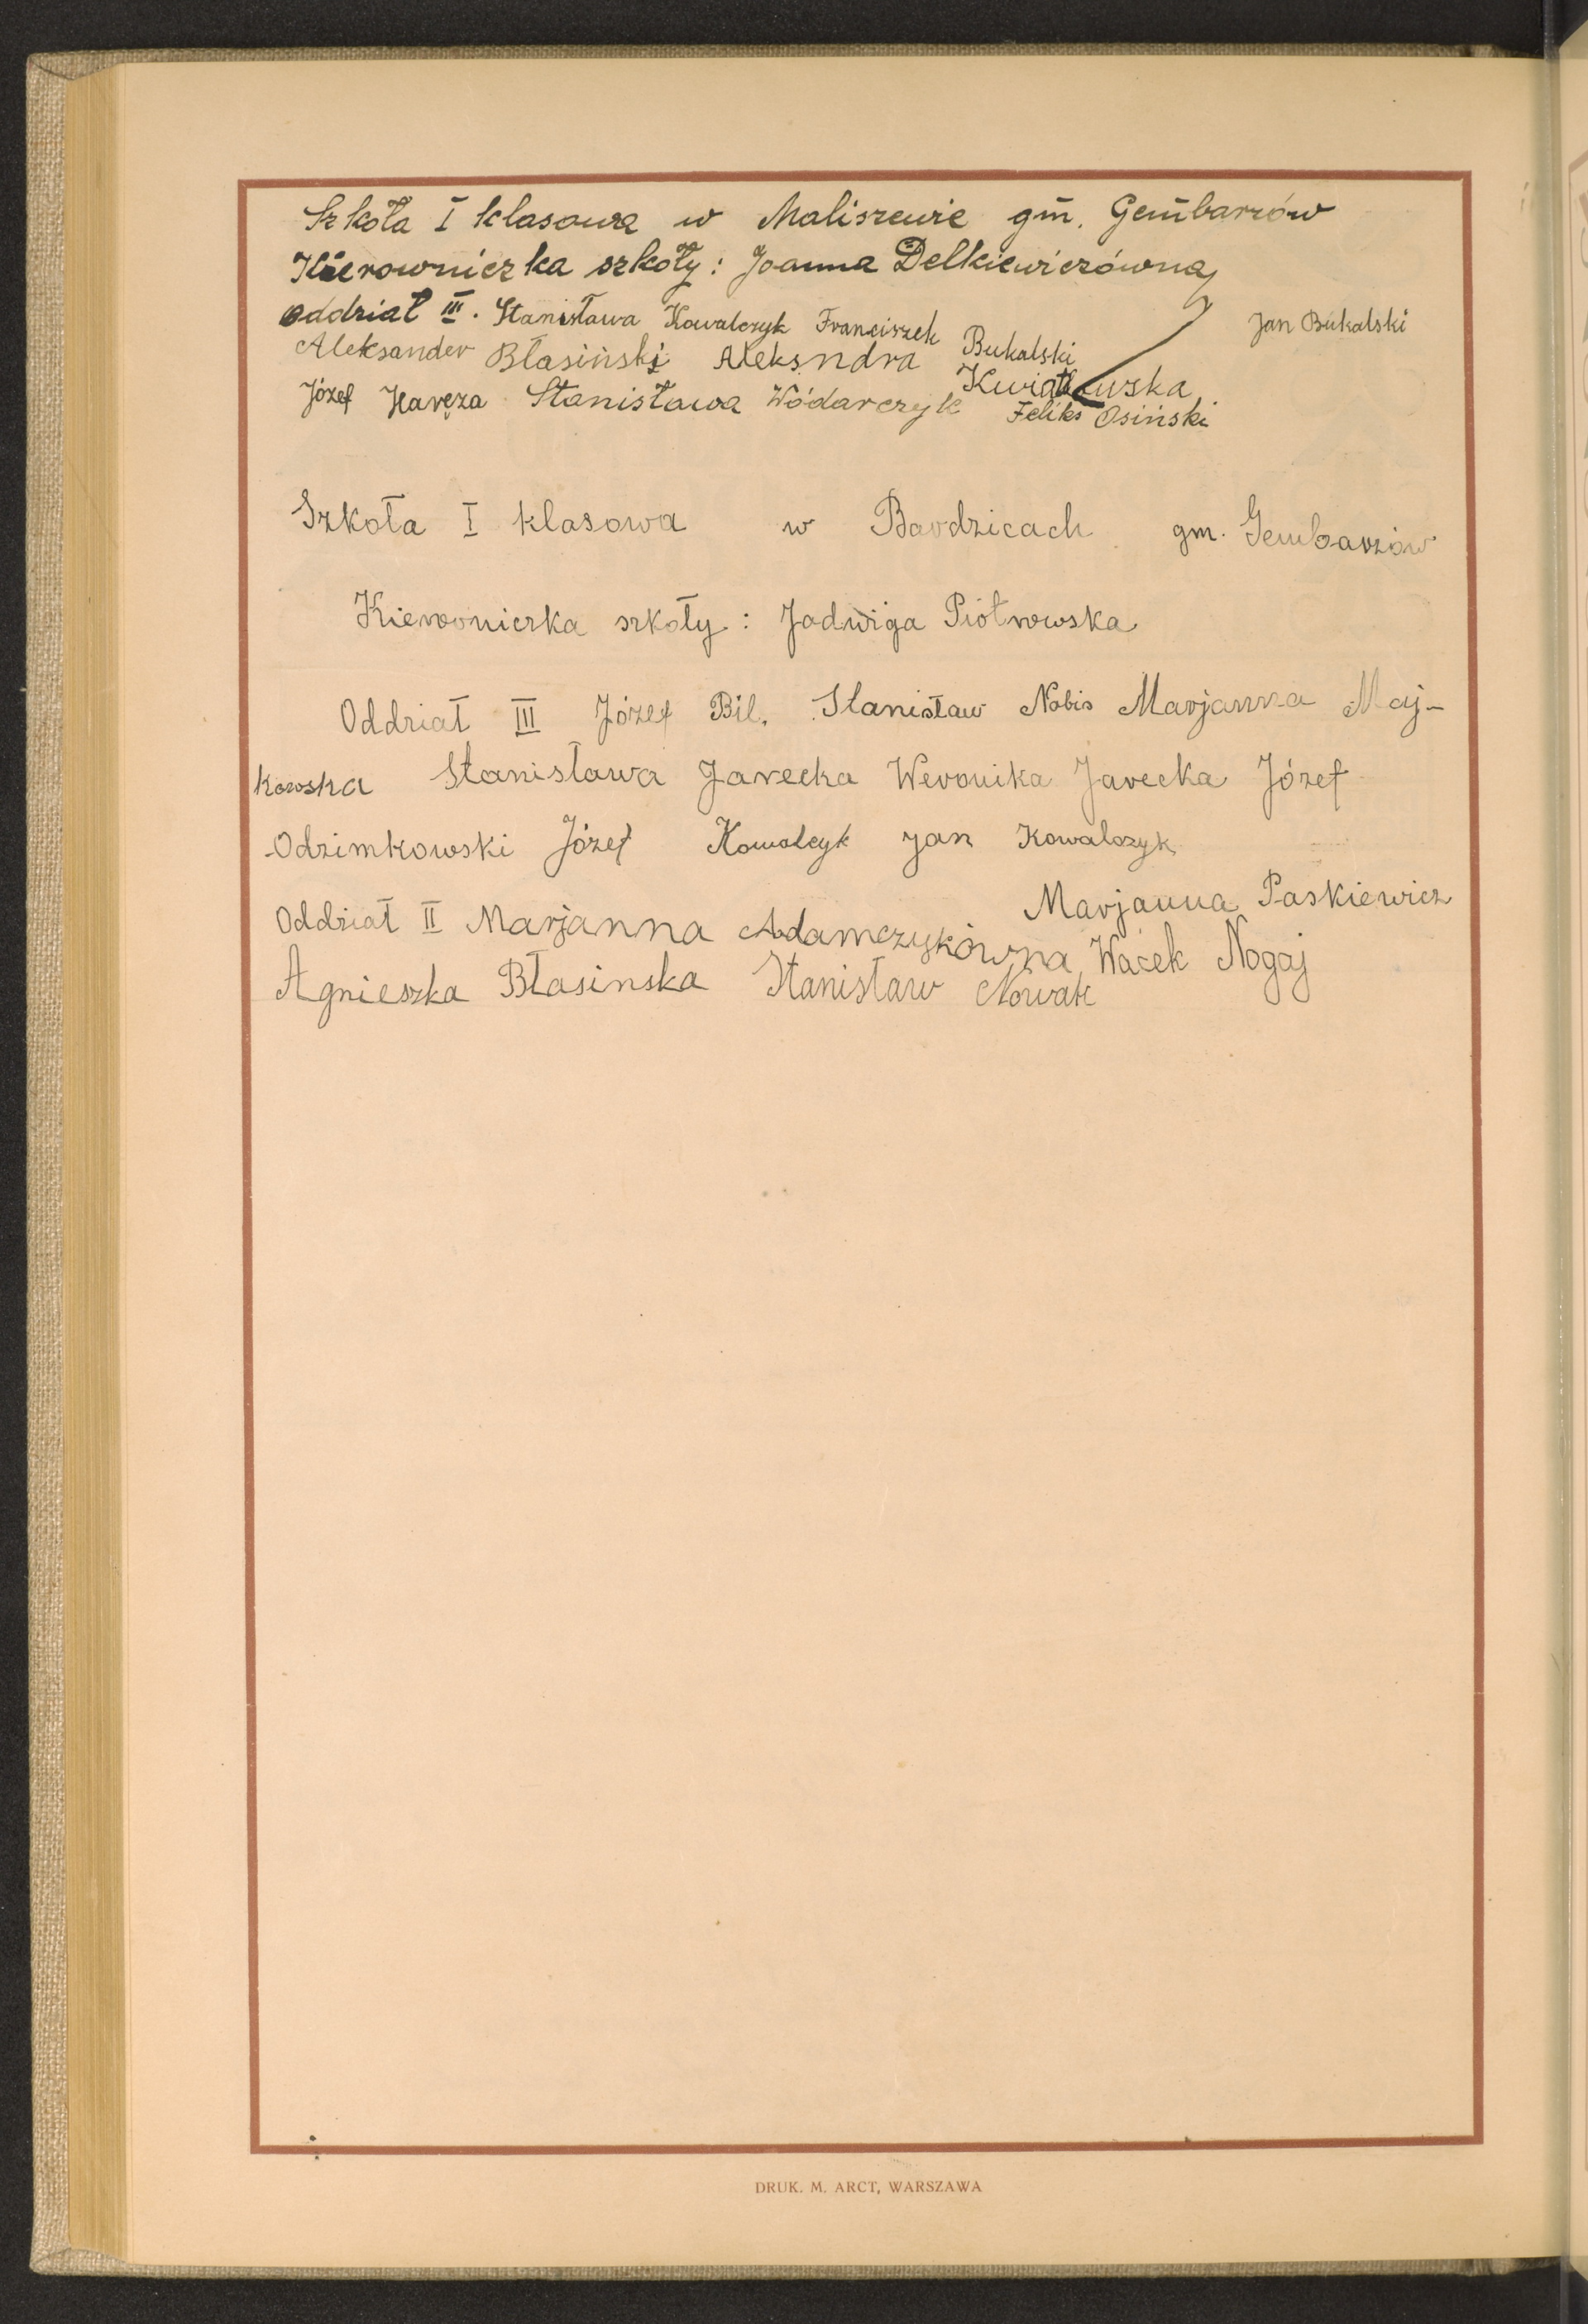 Szkoła I klasowa w Maliszewie gm. Gembarzów
Kierowniczka szkoły: Joanna Delkiewiczówna
Oddział III. Stanisława Kowalczyk Franciszek Bukalski Jan Bukalski
Aleksander Błasiński Aleksndra Kwiatkowska
Józef Karęza Stanisława Wódarczyk Feliks Osiński
Szkoła I klasowa w Bardzicach gm. Gembarzów
Kierowniczka szkoły: Jadwiga Piotrowska
Oddział III Józef Bil. Stanisław Nobis Marjanna Maj-
kowska Stanisława Jarecka Weronika Jarecka Józef
Odzimkowski Józef Kowalcyk Jan Kowalczyk
Oddział II Marjanna Adamczykówna Marjanna Paskiewicz
Agnieszka Błasinska Stanisław Nowak Wacek Nogaj
DRUK. M. ARCT, WARSZAWA